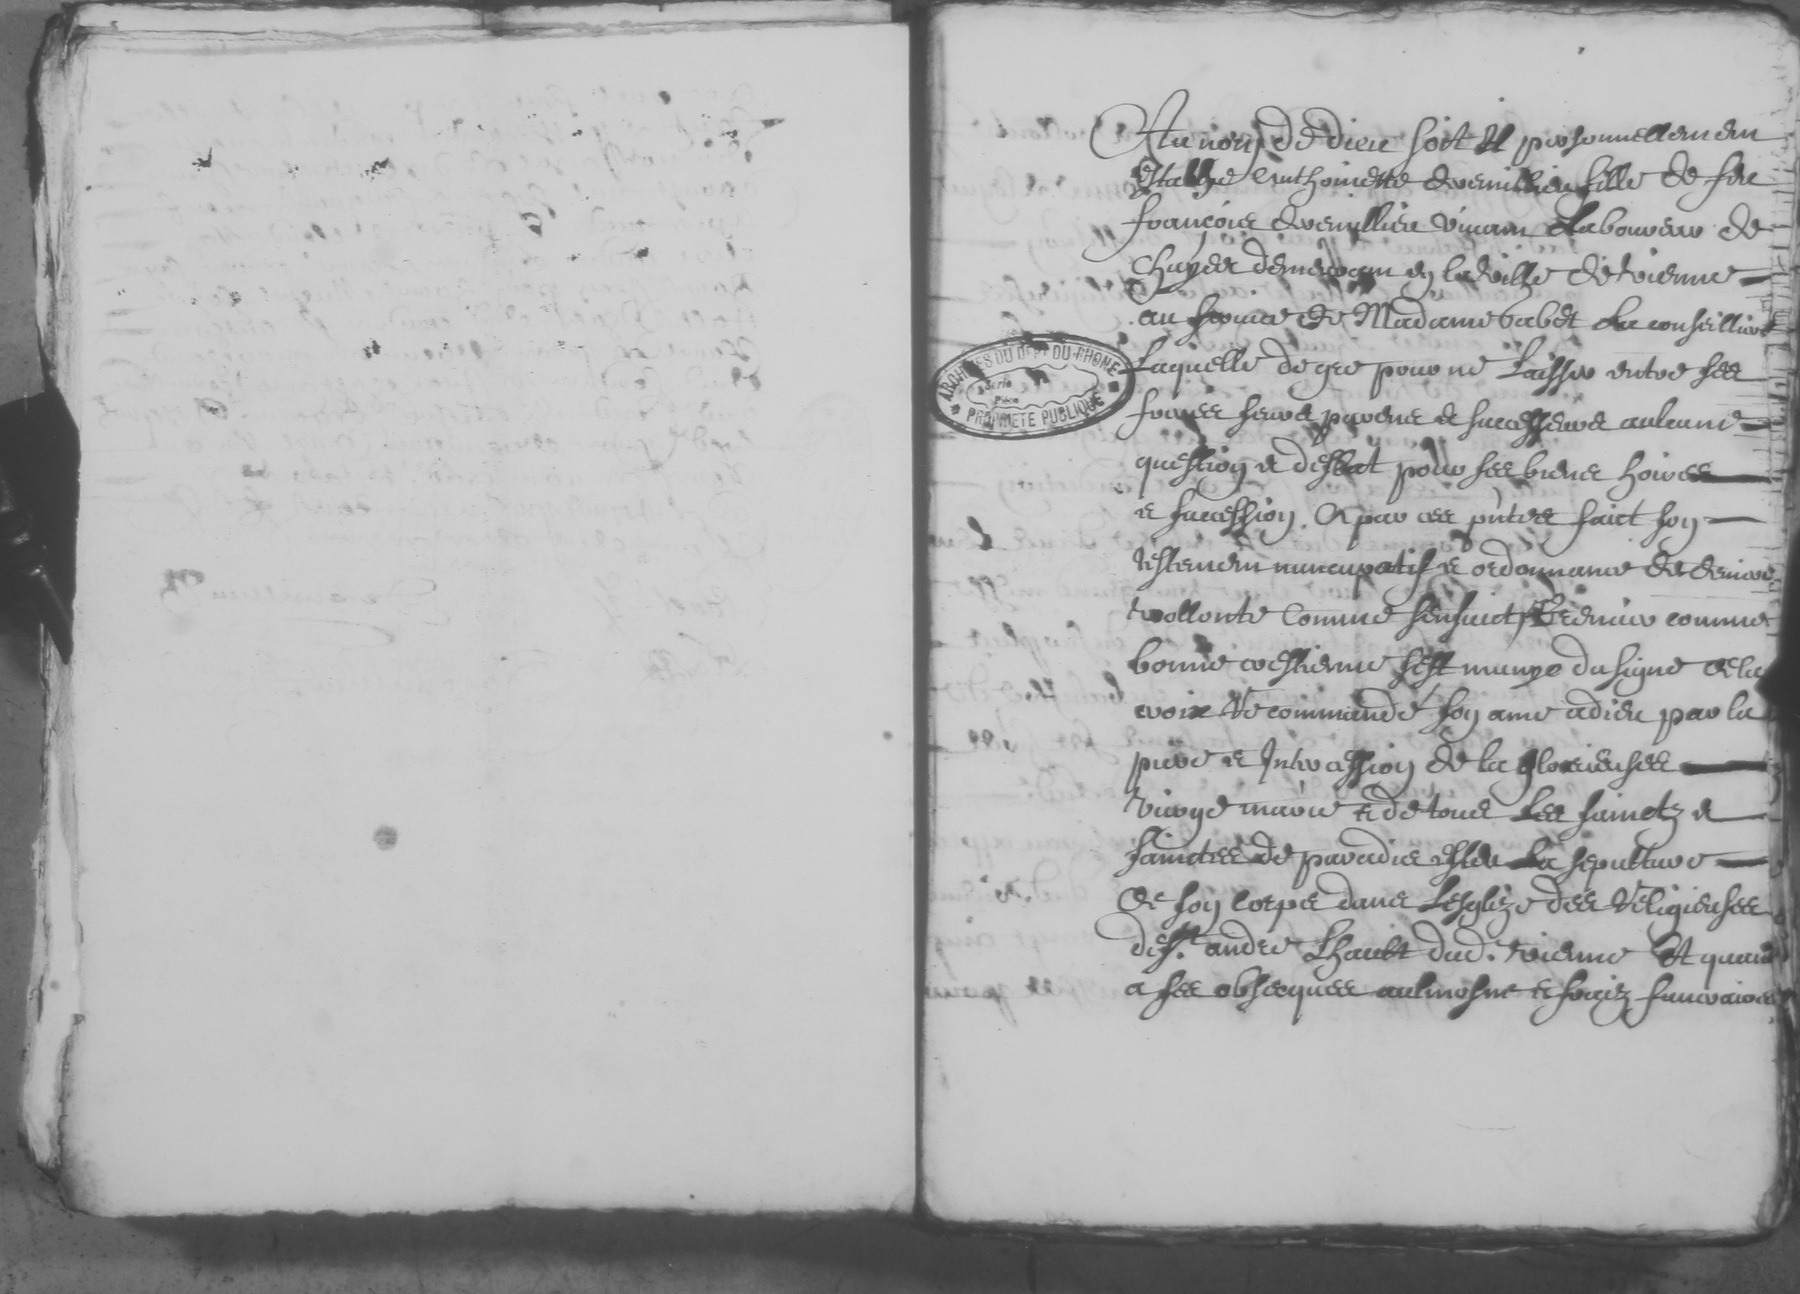 Au nom de dieu soit Et personnellement
establye Anthoinette fille de feu
françois vivant Laboureur de
Chuyer demeurant en la ville de vienne
au service de Madame babet La conseilliere
Laquelle de gre pour ne Laisser entre ses
freres seurs parens et successeurs aulcune
question et debat pour ses biens hoirs
et succession. A par ces pntes faict son
testement nuncupatif et ordonnance de derniere
vollonte Comme sensuict Premier comme
bonne crestienne sest munye du signe de la
croix Recommandé son ame a dieu par la
priere et Intercession de la glorieuse
vierge marie et de tous Les sainctz et
sainctes de paradis esleu La sepulture
de son corps dans Lesglize des Religieuses
de St. andre Lhault dud. vienne Et quand
a ses obseques aulmosne et fraiz funeraires
ARCHIVES DU DEPT DU RHONE
Serie
Pièce
PROPRIETE PUBLIQUE